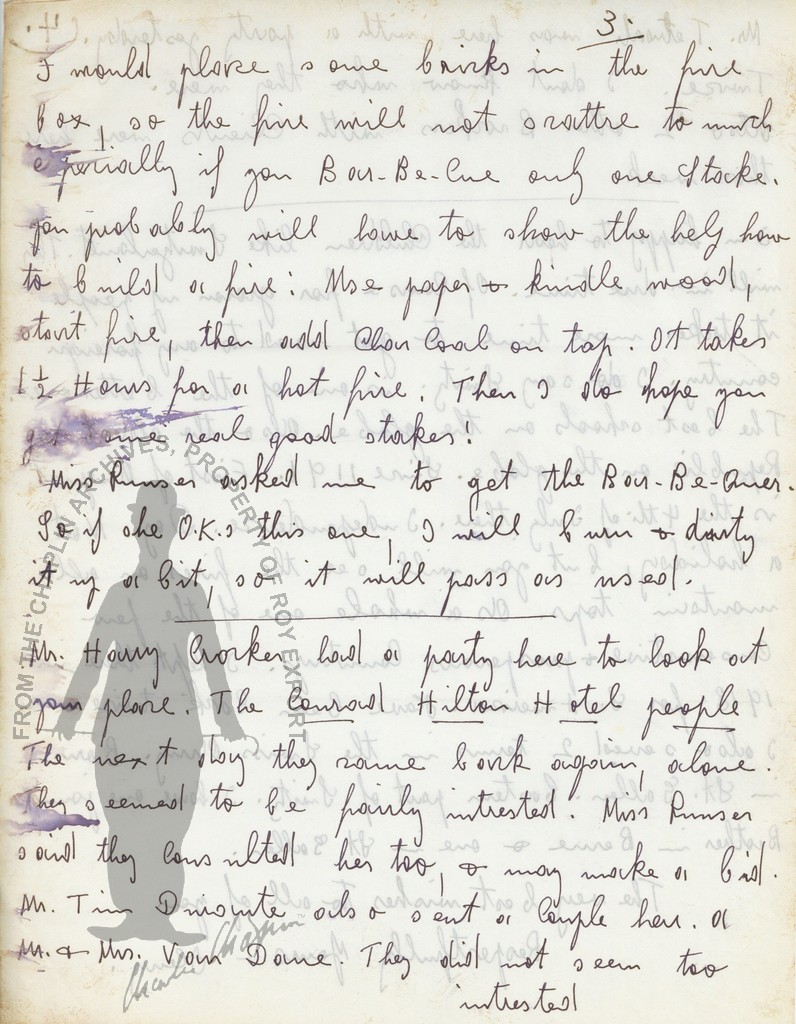 3.
I would place some bricks in the fire
box, so the fire will not scattre to much
especially if you Bar-Be-Cue only one Stake.
you probably will have to show the help how
to build a fire: Use paper & kindle wood,
start fire, then add Char Coal on top. It takes
1½ Hours for a hot fire. Then I do hope you
get some real good stakes!
Miss Runser asked me to get the Bar-Be-Quer.
So if she O.K.s this one, I will burn & dirty
it up a bit, so it will pass as used.
Mr. Harry Crocker had a party here to look at
your place. The Conrad Hilton Hotel people
The next day they came back again, alone.
They seemed to be fairly intrested. Miss Runser
said they Consulted her too, & may make a bid.
Mr. Tim Duroute also sent a Couple her. a
Mr. & Mrs. Van Dame. They did not seem too
intrested
FROM THE CHAPLIN ARCHIVES, PROPERTY OF ROY EXPORT
Charlie Chaplin